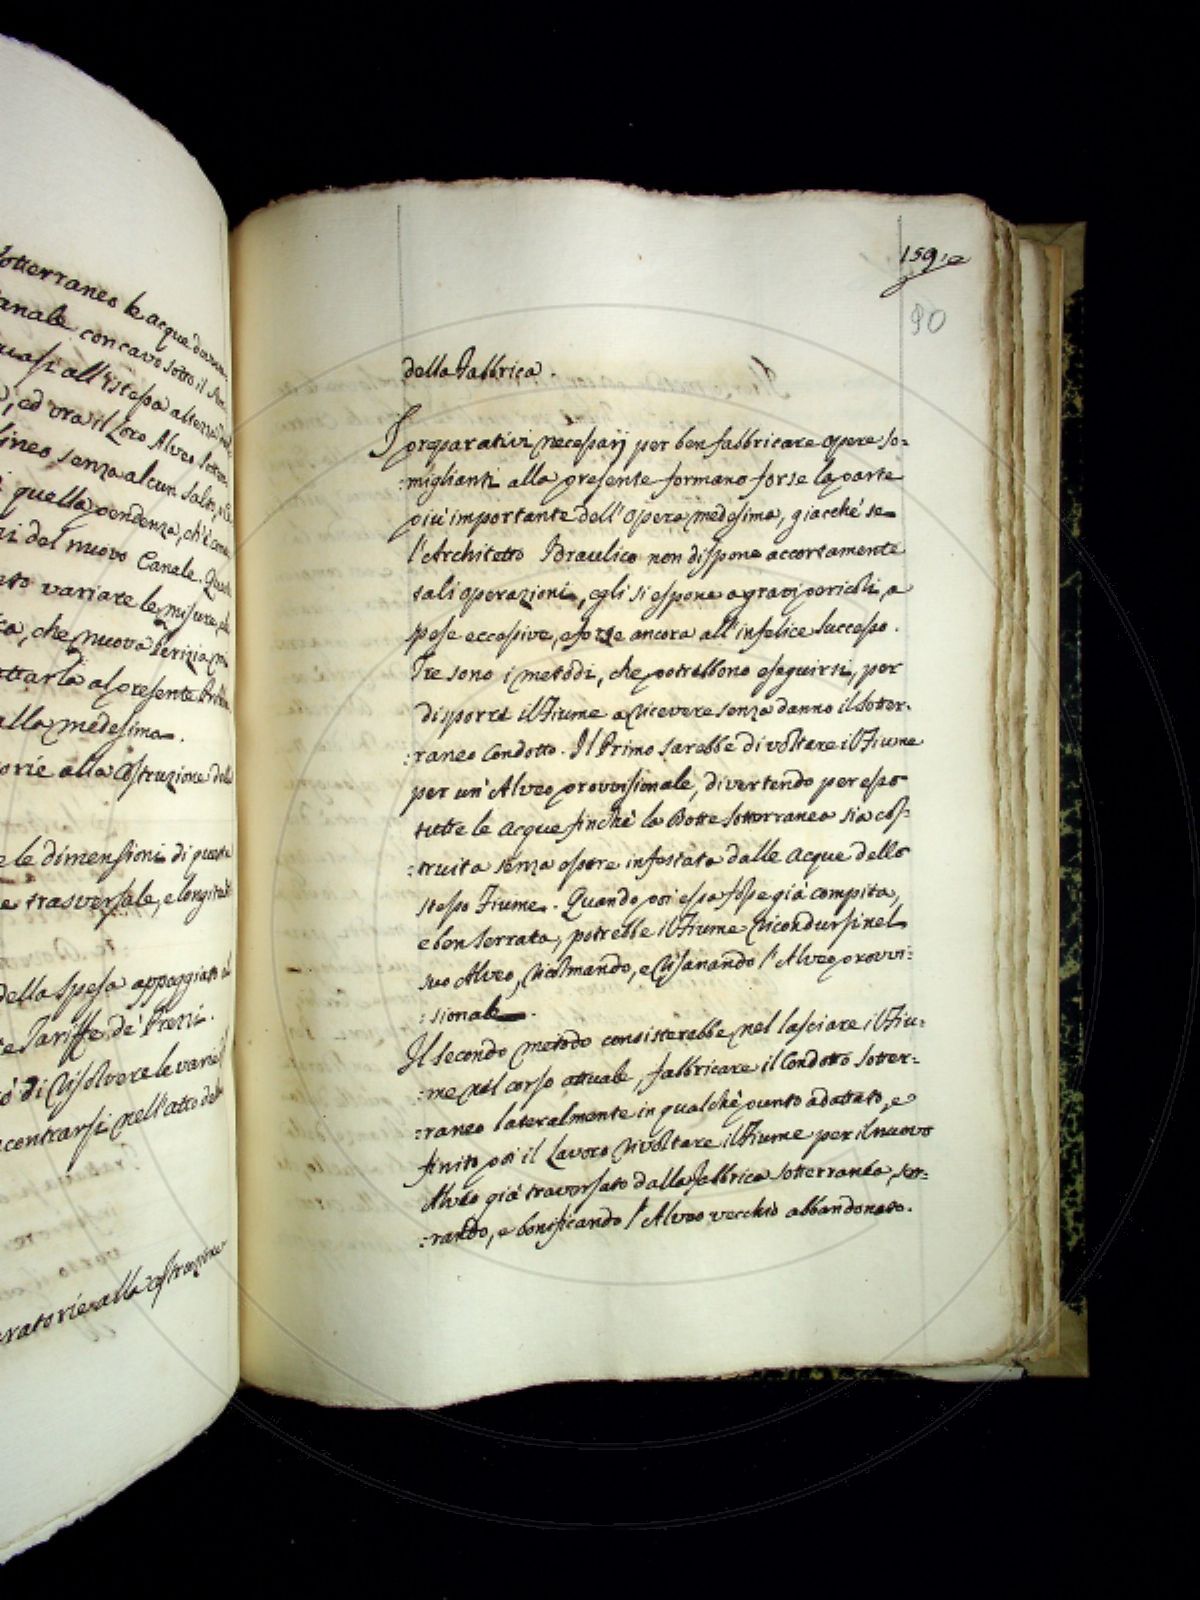 sotterraneo le acque
canale concavo sotto il
quasi all'istessa altezza
, ed ora il loro Alveo
lineo senza alcun salto,
quella pendenza, ch'è
del nuovo Canale.
variare le misure,
, che nuova Perizia
al presente
alla medesima.
alla costruzione
le dimensioni di questa
e trasversale, e
della spesa appoggiato
e Tariffe de' Prezzi.
di risolvere le varie
nell'atto
alla costruzione
159
90
della Fabbrica.
I preparativi necessarj per ben fabbricare opere so=
=miglianti alla presente formano forse la parte
più importante dell'Opera medesima, giacchè se
l'Architetto Idraulico non dispone accortamente
tali operazioni, egli si espone a gravi pericoli, a
spese eccessive, e forse ancora all'infelice successo.
Tre sono i metodi, che potrebbono eseguirsi, per
disporre il Fiume a ricevere senza danno il sotter=
=raneo Condotto. Il Primo sarebbe di voltare il Fiume
per un'Alveo provvisionale, divertendo per esso
tutte le acque finchè la Botte sotterranea sia cos=
=truita senza essere infestata dalle acque dello
stesso Fiume. Quando poi essa fosse già compita,
e ben serrata, potrebbe il Fiume ricondursi nel
suo Alveo, ricolmando, e risanando l'Alveo provvi=
=sionale.
Il secondo metodo consisterebbe nel lasciare il Fiu=
=me nel corso attuale, fabbricare il Condotto sotter=
=raneo lateralmente in qualchè punto adattato, e
finito poi il lavoro rivoltare il Fiume per il nuovo
Alveo già traversato dalla fabbrica sotterranea, ser=
=rando, e bonificando l'Alveo vecchio abbandonato.